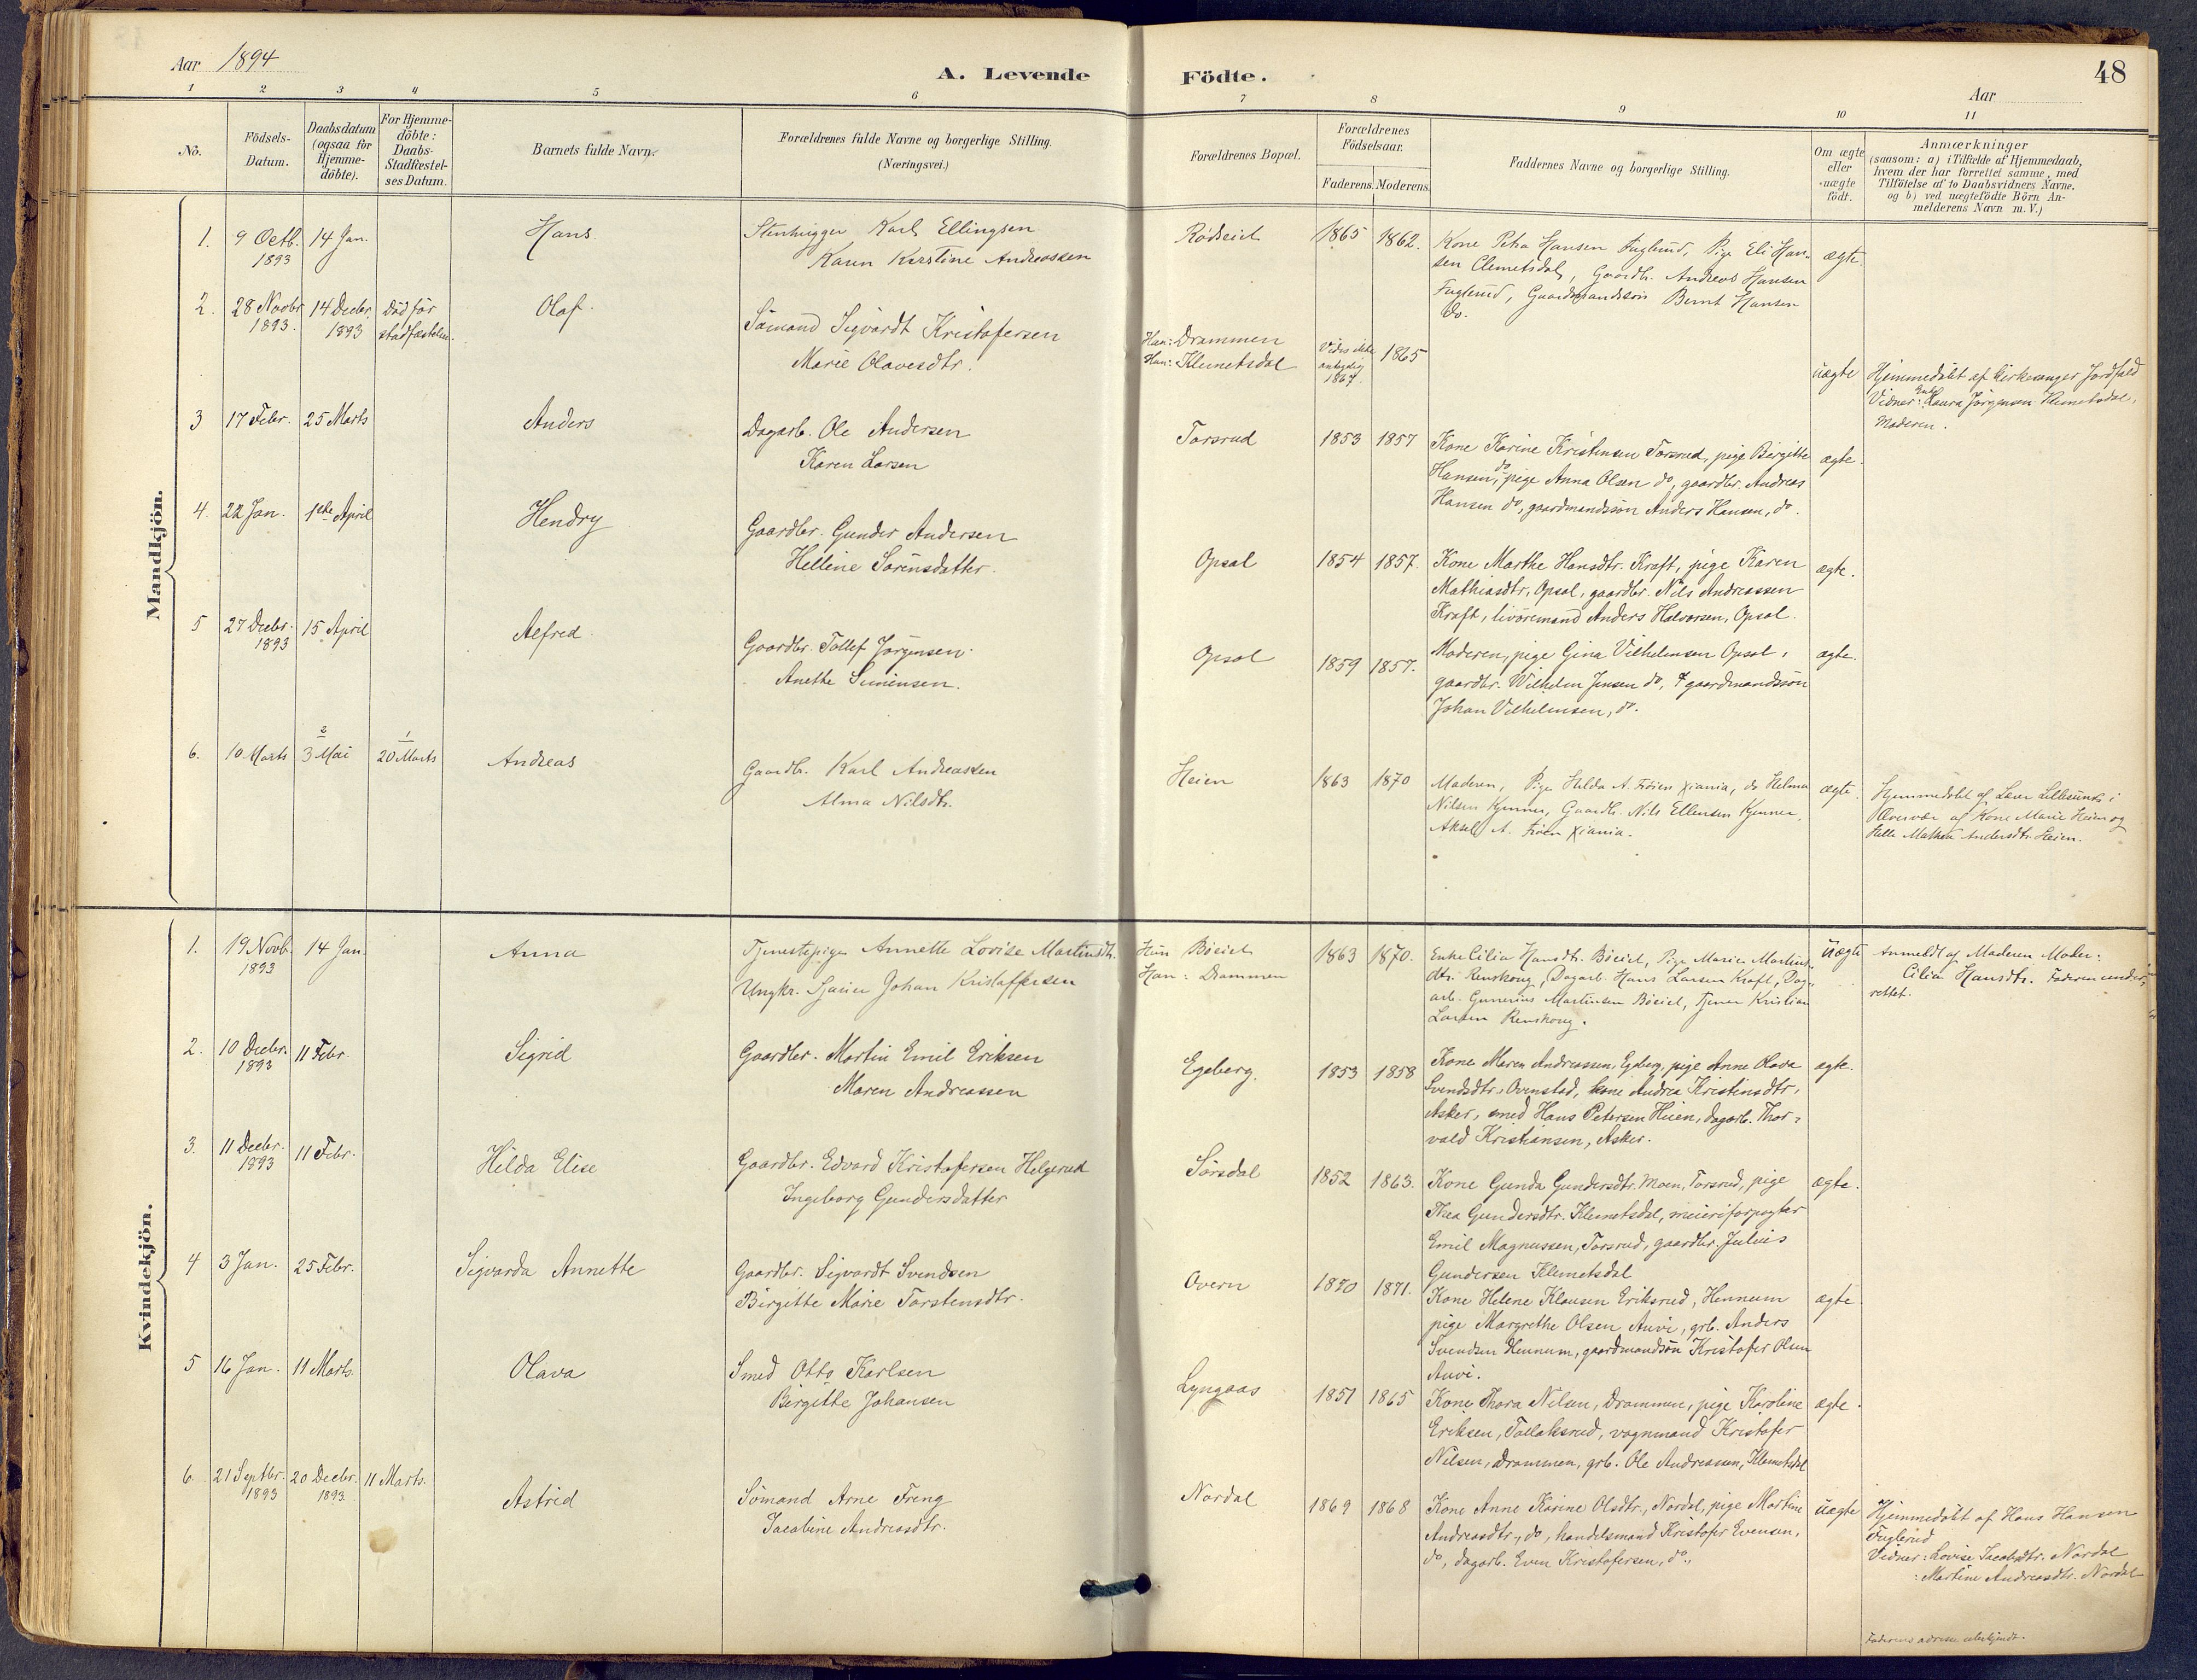 Aar 1894
A. Levende Födte.
48
Aar
1 2 3 4 5 6 7 8 9 10 11
No.
Födsels-
Datum.
Daabsdatum
(ogsaa for
Hjemme-
döbte).
For Hjemme-
döbte:
Daabs-
Stadfæstel-
ses Datum.
Barnets fulde Navn.
Forældrenes fulde Navne og borgerlige Stilling.
(Næringsvei.)
Forældrenes Bopæl.
Forældrenes
Födselsaar.
Faderens. Moderens.
Faddernes Navne og borgerlige Stilling.
Om ægte
eller
uægte
födt.
Anmærkninger
(saasom: a) i Tilfælde af Hjemmedaab,
hvem der har forrettet samme, med
Tilföielse af to Daabsvidners Navne,
og b) ved uægtefödte Börn An-
melderens Navn m. V.)
Mandkjön.
1. 9 Octb. 14 Jan. Hans
1893
Stenhugger Karl Ellingsen
Karen Kirstine Andreassen
Rødseiet 1865 1862.
Kone Petra Hansen Fuglerud, Pige Eli Han-
sen Clemetsdal, Gaardb. Andreas Hansen
Fuglerud, Gaardmandssön Bernt Hansen
do.
ægte.
2. 28 Novbr 14 Decbr. Død før Olaf.
1893. 1893 stadfæstelsen.
Sømand Sigvardt Kristofersen
Marie Olavesdtr.
Han: Drammen
Hun: Klemetsdal
Vides ikke
antagelig
1867.
1865
uægte
Hjemmedøbt af Kirkesanger Jordfald
Vidner: Enke Laura Jørgensen Klemetsdal,
Moderen.
3 17 Febr. 25 Marts Anders
Dagarb. Ole Andersen
Karen Larsen
Torsrud 1853 1857
Kone Karine Kristensen Torsrud, pige Birgitte
Hansen, do, pige Anna Olsen do, gaardbr. Andreas
Hansen do, gaardmandssøn Anders Hansen, do.
ægte.
4. 22 Jan. 1ste April Hendry
Gaardbr. Gunder Andersen
Helline Sørensdatter.
Opsal 1854 1857.
Kone Marthe Hansdtr. Kraft, pige Karen
Mathiasdtr. Opsal, gaardbr. Nils Andreassen
Kraft, livøremand Anders Halvorsen, Opsal.
ægte.
5 27 Decbr. 15 April Alfred.
1893
Gaardbr. Tollef Jørgensen.
Anette Simensen.
Opsal 1859 1857.
Moderen, pige Gina Vilhelmsen Opsal,
gaardbr. Wilhelm Jensen do, gaardmandssøn
Johan Vilhelmsen, do.
ægte.
2 1
6. 10 Marts 3 Mai 20 Marts Andreas
Gaardb. Karl Andreassen
Alma Nilsdtr.
Heien 1863 1870
Moderen, Pige Hilda A. Frøien Xiania, do Helma
Nilsen Kjenner, Gaardb. Nils Ellensen Kjenner,
Aksel A. Frøien Xiania.
ægte.
Hjemmedøbt af Lærer Lillesund i
Overvær af Kone Marie Heien og
Helle Mathea Andersdtr. Heien.
Kvindekjön.
1. 19 Novb. 14 Jan. Anna
1893
Tjenestepige Annette Lovise Martinsdtr.
Ungkr. Johan Kristoffersen
Hun Böeiet
Han: Drammen
1863 1870.
Enke Cilia Hansdtr. Böeiet, Pige Marie Martins-
dtr. Renskoug, Dagarb. Hans Larsen Kraft, Dag-
arb. Gunerius Martinsen Böeiet, Tjener Kristian
Larsen Renskoug.
uægte
Anmeldt af Moderens Moder:
Cilia Hansdtr. Faderen under-
rettet.
2. 10 Decbr. 11 Febr. Sigrid
1893
Gaardbr. Martin Emil Eriksen
Maren Andreassen
Egeberg. 1853 1858
Kone Maren Andreassen, Egeberg, pige Anne Olava
Svendsdtr. Ovenstad, kone Andrea Kristensdtr,
Asker, smed Hans Petersen Heien, dagarb. Thor-
vald Kristiansen, Asker.
ægte.
3. 11 Decbr. 11 Febr. Hilda Elise
1893
Gaardbr. Edvard Kristofersen Helgerud
Ingeborg Gundersdatter
Sørsdal 1852 1863.
Kone Gunda Gundersdtr. Moen, Torsrud, pige
Thea Gundersdtr. Klemetsdal, meieriforpagter
Emil Magnussen, Torsrud, gaardbr. Julius
Gundersen Klemetsdal
ægte.
4 3 Jan. 25 Febr. Sigvarda Annette
Gaardbr. Sigvardt Svendsen
Birgitte Marie Torstensdtr.
Overn 1870 1871.
Kone Helene Klausen Eriksrud, Hennum
pige Margrethe Olsen Auvi, grb. Anders
Svendsen Hennum, gaardmandsøn Kristofer Olsen
Auvi.
ægte.
5 16 Jan. 11 Marts. Olava
Smed Otto Karlsen
Birgitte Johansen
Lyngaas 1851 1865
Kone Thora Nilsen, Drammen, pige Karoline
Eriksen, Tollaksrud, vognmand Kristofer
Nilsen, Drammen, grb. Ole Andreassen, Klemetsdal
ægte.
6. 21 Septbr. 20 Decbr. 11 Marts. Astrid
1893 1893
Sømand Arne Freng
Jacobine Andreasdtr.
Nordal 1869 1868
Kone Anne Karine Olsdtr., Nordal, pige Martine
Andreasdtr., do, handelsmand Kristofer Evensen,
do, dagarb. Even Kristofersen, do.,
uægte
Hjemmedøbt af Hans Hansen
Fuglerud
Vidner: Lovise Jacobsdtr. Nordal
: Martine Andreasdtr. Nordal
Faderens adresse ubekjendt.